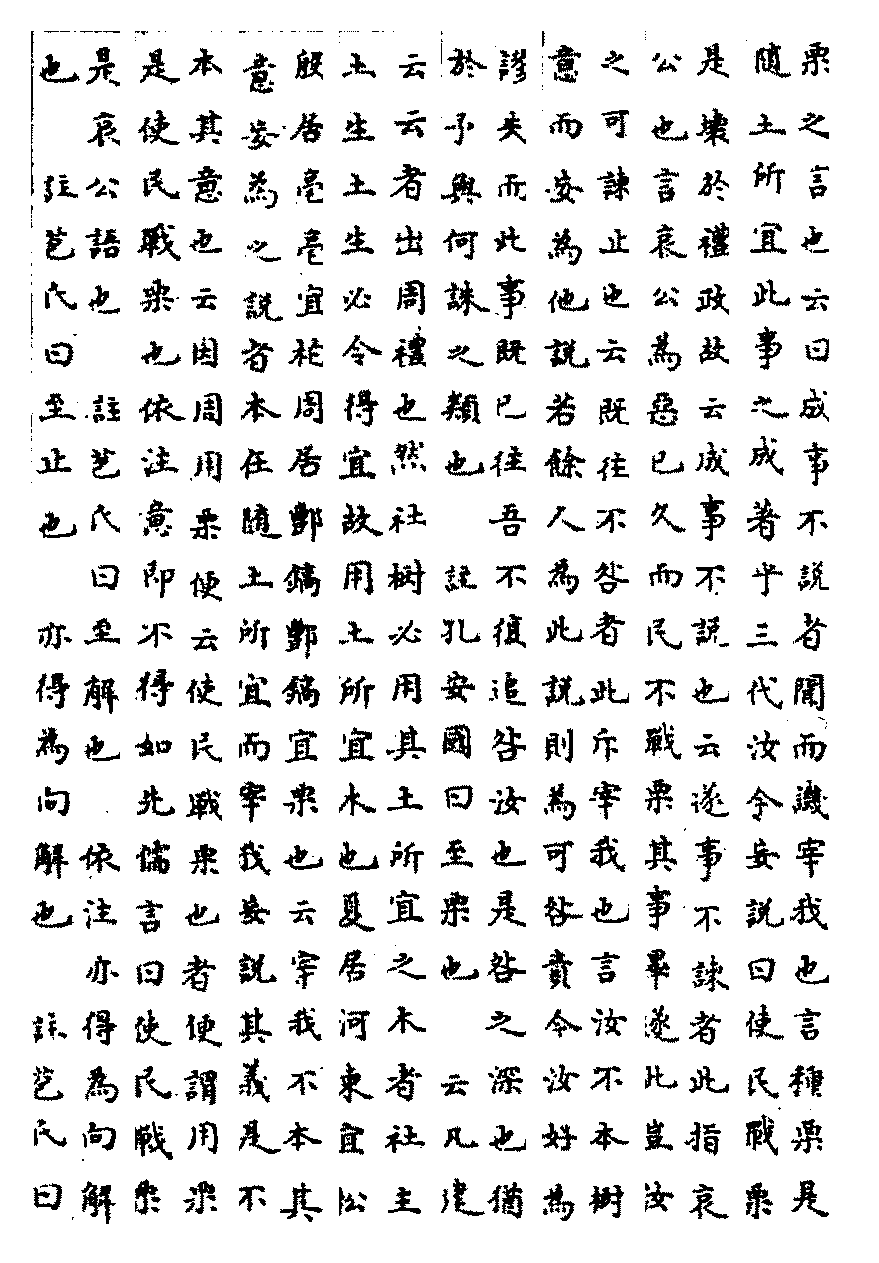 栗之言也云曰成事不説者聞而譏宰我也言種栗是
隨土所宜此事之成著乎三代汝今妄説曰使民戰栗
是壊於禮政故云成事不説也云遂事不諫者此指哀
公也言哀公為惡已久而民不戰栗其事畢遂此豈汝
之可諫止也云既往不咎者此斥宰我也言汝不本樹
意而妄為他説若餘人為此説則為可咎責今汝好為
謬失而此事既已往吾不復追咎汝也是咎之深也猶
於予與何誅之類也　註孔安國曰至栗也　云凡建
云云者出周禮也然社樹必用其土所宜之木者社主
土生土生必令得宜故用土所宜木也夏居河東宜松
殷居亳亳宜柏周居酆鎬酆鎬宜栗也云宰我不本其
意妄為之説者本任隨土所宜而宰我妄説其義是不
本其意也云因周用栗便云使民戰栗也者便謂用栗
是使民戰栗也依注意即不得如先儒言曰使民戰栗
是哀公語也　註苞氏曰至解也　依注亦得為向解
也　註苞氏曰至止也　亦得為向解也　註苞氏曰